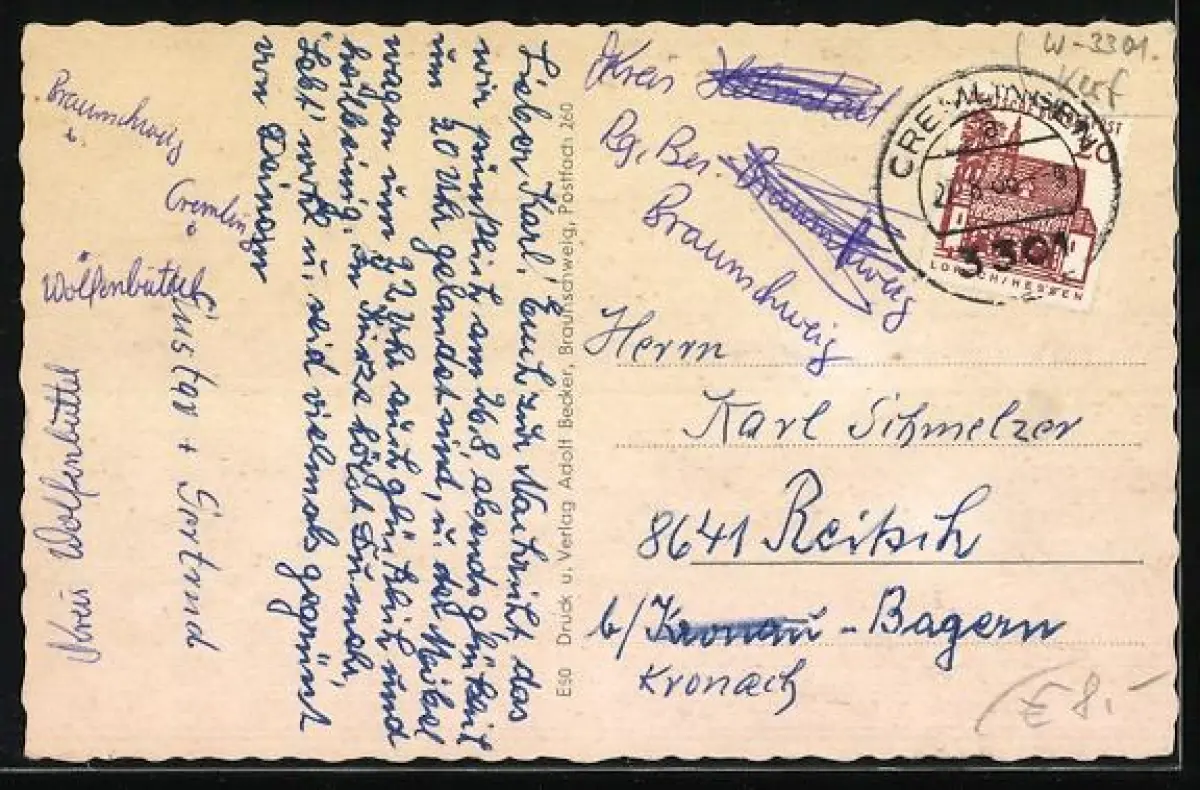 Braunschweig
Cremling
Wolfenbüttel
Kreis Wolfenbüttel
Lieber Karl. Euch zur Nachricht das
wir pünktlich am 26.8 abends
um 20 Uhr gelandet sind, u. der Möbel
wagen um 22 Uhr auch glücklich und
In Kürze hörst Du mehr,
Lebt wohl u. seid vielmals gegrüsst
von Deinem
Gustav + Gertrud
Es0 Druck u. Verlag Adolf Becker, Braunschweig, Postfach 260
Kreis Helmstedt
Rg. Bez. Braunschweig
Braunschweig
W-3301.
CREMLINGEN
a
3301
20
LORSCH/HESSEN
Herrn
Karl Schmelzer
8641 Reitsch
b/ Kronau - Bayern
Kronach
€ 8.-